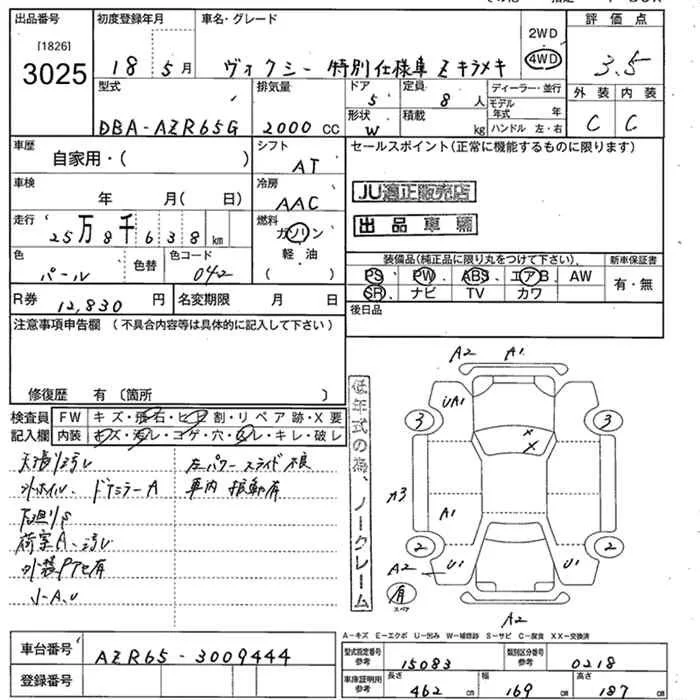 出品番号
[1826]
3025
初度登録年月
18 5月
車名・グレード
ヴォクシー 特別仕様車 Z キラメキ
2WD
4WD
評価点
3.5
型式
DBA-AZR65G
排気量
2000 CC
ドア
5
形状
W
定員
8 人
積載
kg
ディーラー・並行
モデル
年式 年
ハンドル 左・右
外装 内装
C C
車歴
自家用・( )
シフト
AT
車検
年 月( 日)
冷房
AAC
走行
25万8千638 km
燃料
ガソリン
軽油
( )
色
パール
色替
色コード
042
R券
12,830 円
名変期限 月 日
セールスポイント(正常に機能するものに限ります)
JU適正販売店
出品車輛
装備品(純正品に限り丸をつけて下さい)
PS PW ABS エアB AW
SR ナビ TV カワ
新車保証書
有・無
後日品
注意事項申告欄 (不具合内容等は具体的に記入して下さい)
修復歴 有 (箇所 )
検査員
記入欄
FW キズ・飛石・ヒビ割・リペア跡・X要
内装 キズ・汚レ・コゲ・穴・スレ・キレ・破レ
天張り汚レ
左パワースライド不良
外ホイル、ドアミラーA
車内振動有
下廻りS
荷室A、汚レ
小A.U
低年式の為、ノークレーム
A2 A1
UA1
3 3
A3
A1
2 2
A2 U1 U1
有
スペア
A2
A-キズ E-エクボ U-凹み W-補修跡 S-サビ C-腐食 XX-交換済
車台番号
AZR65-3009444
登録番号
型式指定番号
参考
15083
類別区分番号
参考
0218
車庫証明用
参考
長さ
462 cm
幅
169 cm
高さ
187 cm